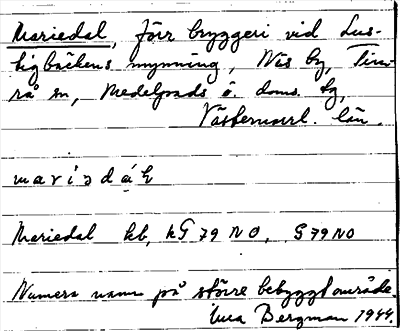 Mariedal, förr bryggeri vid Lus-
tigbäckens mynning, Näs by, Tim-
rå sn, Medelpads ö. doms. tg,
Västernorrl. län.
mariedal kb, kG 79 NO, S 79 NO
Numera namn på större bebyggt område.
Bergman 1944.